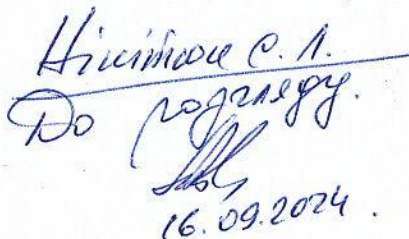 Нікітюк С. Л.
До розгляду.
16.09.2024.